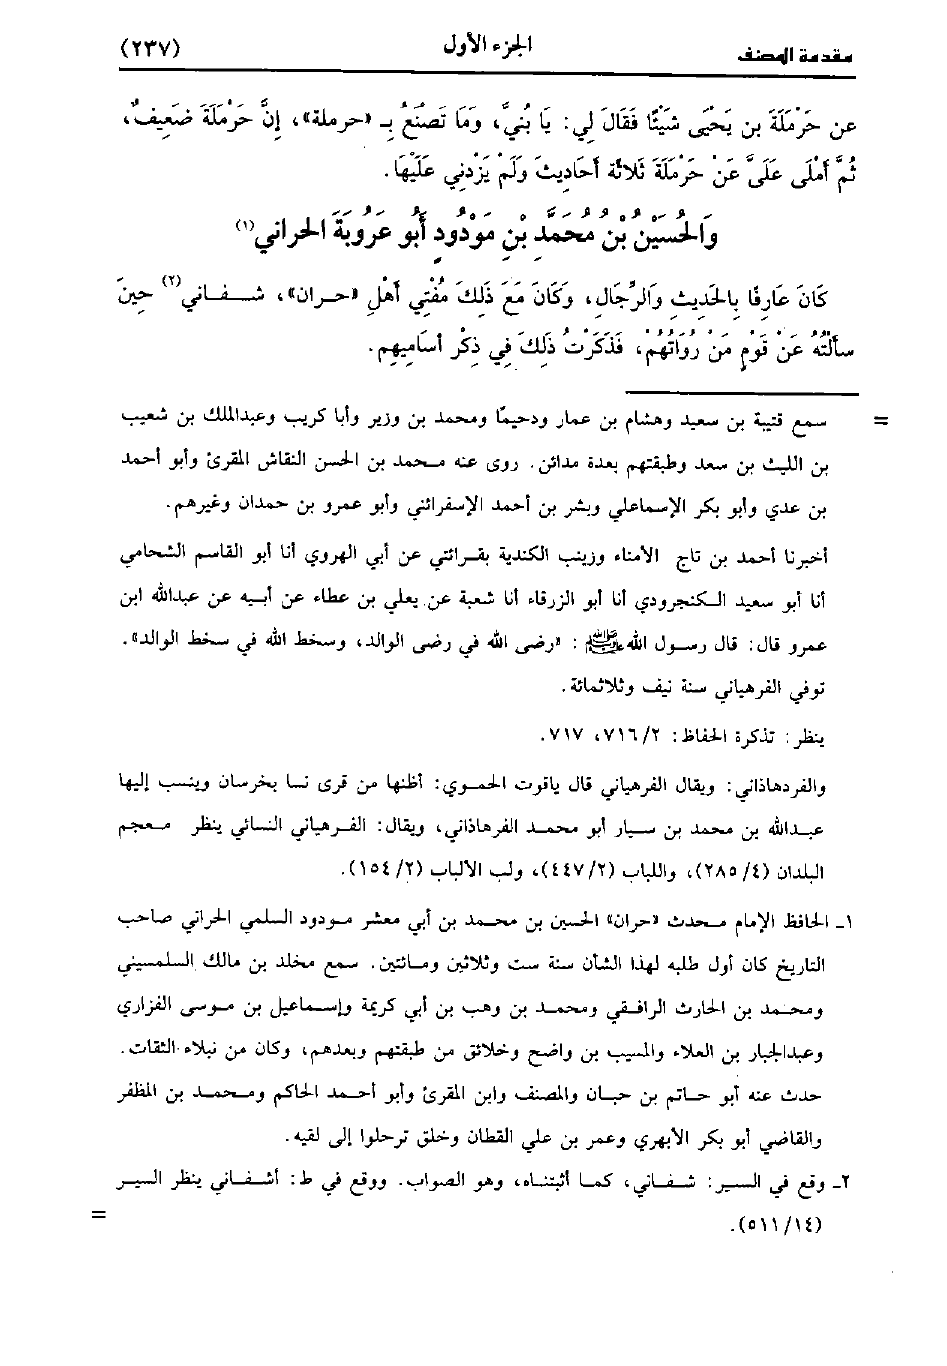 مقدمة المصنف الجزء الأول (٢٣٧)
عن حَرْمَلَةَ بن يَحْيَى شَيْئًا فَقَالَ لِي: يَا بُنَيَّ، وَمَا تَصْنَعُ بـ «حرملة»، إِنَّ حَرْمَلَةَ ضَعِيفٌ،
ثُمَّ أَمْلَى عَلَيَّ عَنْ حَرْمَلَةَ ثَلاثَةَ أَحَادِيثَ وَلَمْ يَزِدْنِي عَلَيْهَا.
وَالحُسَيْنُ بْنُ مُحَمَّدِ بْنِ مَوْدُودِ أَبُو عَرُوبَةَ الحراني(١)
كَانَ عَارِفًا بِالحَدِيثِ وَالرِّجَالِ، وَكَانَ مَعَ ذَلِكَ مُفْتِي أَهْلِ «حران»، شـفـاني(٢) حِينَ
سَأَلْتُهُ عَنْ قَوْمٍ مَنْ رُوَاتُهُمْ، فَذَكَرْتُ ذَلِكَ فِي ذِكْرِ أَسَامِيهِم.
= سمع قتيبة بن سعيد وهشام بن عمار ودحيمًا ومحمد بن وزير وأبا كريب وعبدالملك بن شعيب
بن الليث بن سعد وطبقتهم بعدة مدائن. روى عنه محمد بن الحسن النقاش المقرئ وأبو أحمد
بن عدي وأبو بكر الإسماعلي وبشر بن أحمد الإسفرائني وأبو عمرو بن حمدان وغيرهم.
أخبرنا أحمد بن تاج الأمناء وزينب الكندية بقرائتي عن أبي الهروي أنا أبو القاسم الشحامي
أنا أبو سعيد الكنجرودي أنا أبو الزرقاء أنا شعبة عن يعلي بن عطاء عن أبيه عن عبدالله ابن
عمرو قال: قال رسول الله ﷺ : «رضى الله في رضى الوالد، وسخط الله في سخط الوالد».
توفي الفرهياني سنة نيف وثلاثمائة.
ينظر: تذكرة الحفاظ: ٢/ ٧١٦، ٧١٧.
والفردهاذاني: ويقال الفرهياني قال ياقوت الحموي: أظنها من قرى نسا بخرسان وينسب إليها
عبدالله بن محمد بن سيار أبو محمد الفرهاذاني، ويقال: الفرهياني النسائي ينظر معجم
البلدان (٤/ ٢٨٥)، واللباب (٢/ ٤٤٧)، ولب الألباب (٢/ ١٥٤).
١ـ الحافظ الإمام محدث «حران» الحسين بن محمد بن أبي معشر مودود السلمي الحراني صاحب
التاريخ كان أول طلبه لهذا الشأن سنة ست وثلاثين ومائتين. سمع مخلد بن مالك السلمسيني
ومحمد بن الحارث الرافقي ومحمد بن وهب بن أبي كريمة وإسماعيل بن موسى الفزاري
وعبدالجبار بن العلاء والمسيب بن واضح وخلائق من طبقتهم وبعدهم، وكان من نبلاء الثقات.
حدث عنه أبو حاتم بن حبان والمصنف وابن المقرئ وأبو أحمد الحاكم ومحمد بن المظفر
والقاضي أبو بكر الأبهري وعمر بن علي القطان وخلق ترحلوا إلى لقيه.
٢ـ وقع في السير: شفاني، كما أثبتناه، وهو الصواب. ووقع في ط: أشفاني ينظر السير
(١٤/ ٥١١). =